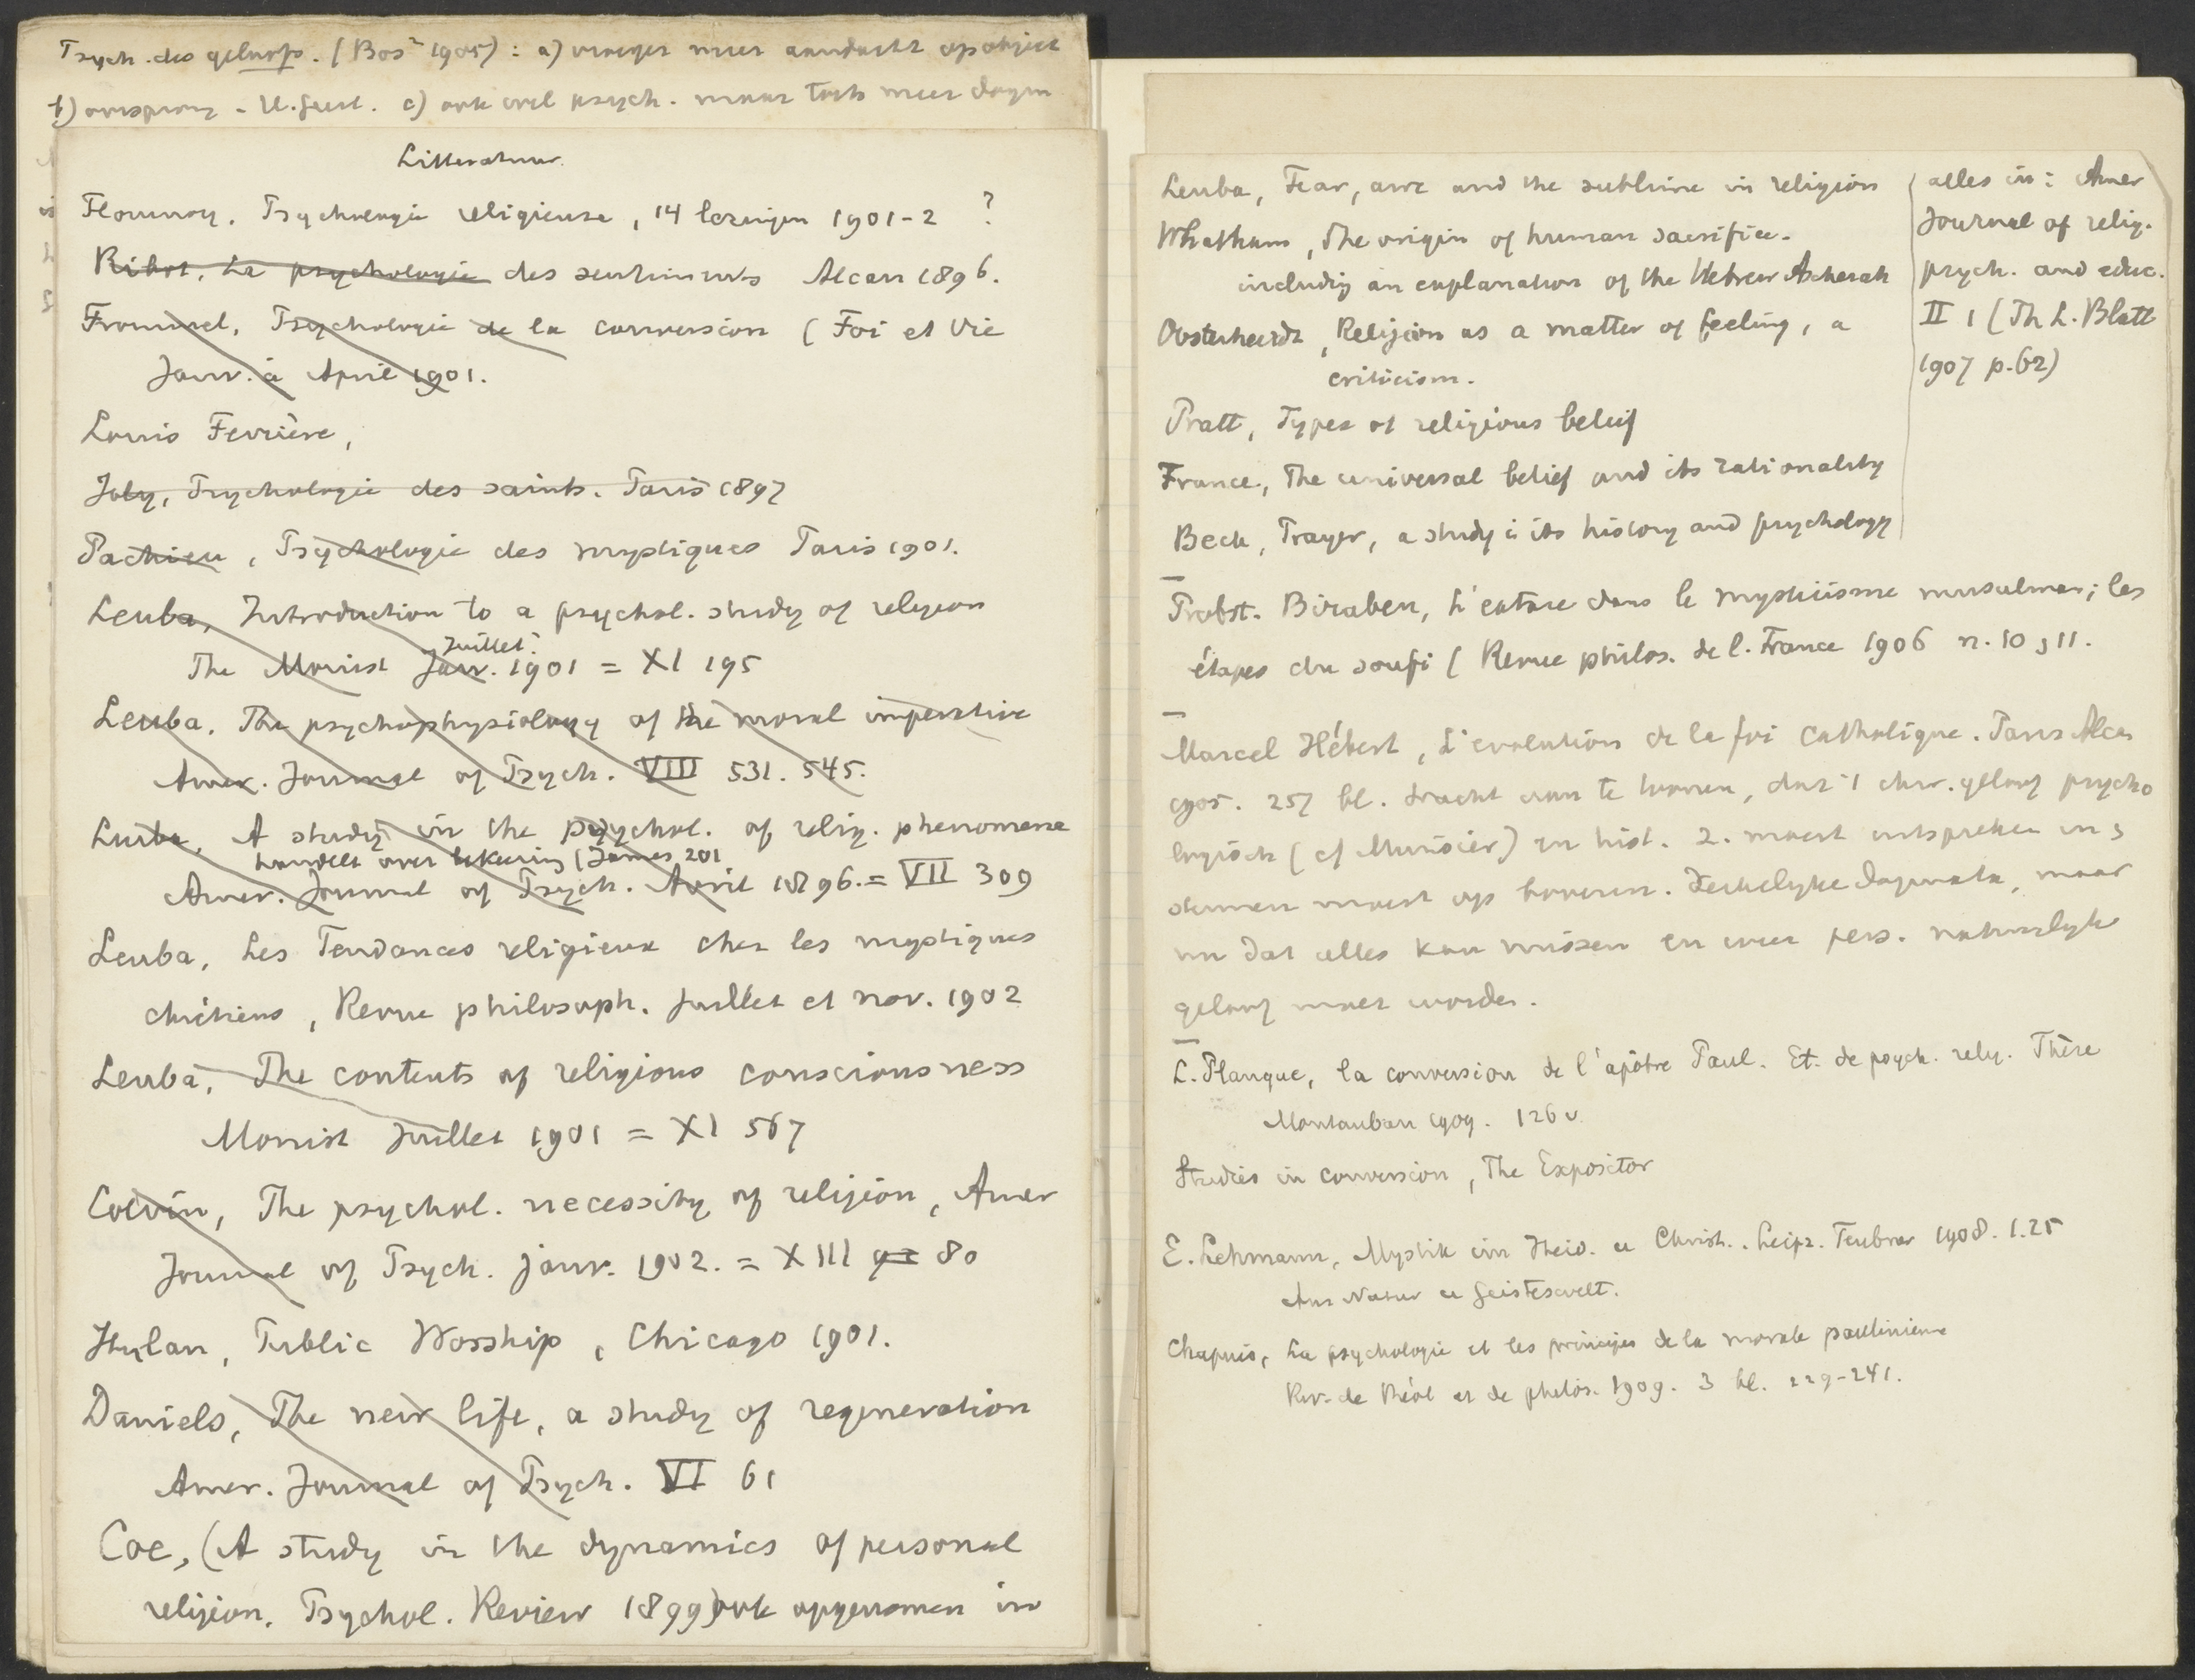 Psych. des geloofs. (Bos² 1905): a) vroeger meer aandacht op object
b) oorsprong - H. Geest. c) ook wel psych. maar toch meer dogm
Litteratuur.
Flournoy, Psychologie religieuse, 14 lezingen 1901-2 ?
Ribot, La psychologie des sentiments Alcan 1896.
Frommel, Psychologie de la conversion (Foi et Vie
Janv. à April 1901.
Louis Ferrière,
Joly, Psychologie des saints. Paris 1897
Pachieu, Psychologie des mystiques Paris 1901.
Leuba, Introduction to a psychol. study of religion
Juillet?
The Monist Janv. 1901 = XI 195
Leuba. The psychophysiology of the moral imperative
Amer. Journal of Psych. VIII 531. 545.
Leuba, A study in the psychol. of relig. phenomena
handelt over bekeering (James 201
Amer. Journal of Psych. Avril 1896. = VII 309
Leuba, Les Tendances religieux chez les mystiques
chrétiens, Revue philosoph. Juillet et nov. 1902
Leuba, The contents of religious consciousness
Monist Juillet 1901 = XI 567
Colvin, The psychol. necessity of religion, Amer
Journal of Psych. janv. 1902. = XIII 80
Hylan, Public Worship, Chicago 1901.
Daniels, The new life, a study of regeneration
Amer. Journal of Psych. VI 61
Coe, (A study in the dynamics of personal
religion. Psychol. Review 1899) ook opgenomen in
Leuba, Fear, awe and the sublime in religion
Whatham, The origin of human sacrifice.
including an explanation of the Hebrew Asherah
Oosterheerdt, Religion as a matter of feeling, a
criticism.
Pratt, Types of religious belief
France, The universal belief and its rationality
Beck, Prayer, a study i its history and psychology
alles in: Amer
Journal of relig.
psych. and educ.
II 1 (Th L. Blatt
1907 p. 62)
Probst. Biraben, L'extase dans le mysticisme musulman; les
étapes du soufi (Revue philos. de l. France 1906 n. 10, 11.
Marcel Hébert, L'evolution de la foi catholique. Paris Alcan
1905. 257 bl. tracht aan te toonen, dat 1 chr. geloof psycho
logisch (cf Murisier) en hist. 2. moest
moest op boven. Kerkelyke dogmata, maar
nu dat alles kan missen en weer pers. natuurlyk
geloof moet worden.
L. Planque, la conversion de l'apôtre Paul. Et. de psych. relig. Thèse
Montauban 1909. 126 v.
Studies in conversion, The Expositor
E. Lehmann, Mystik im Heid. u Christ.. Leipz. Teubner 1908. 1.25
Aus Natur u Geisteswelt.
Chapuis, La psychologie et les principes de la morale paulinienne
Rev. de théol et de philos. 1909. 3 bl. 229-241.